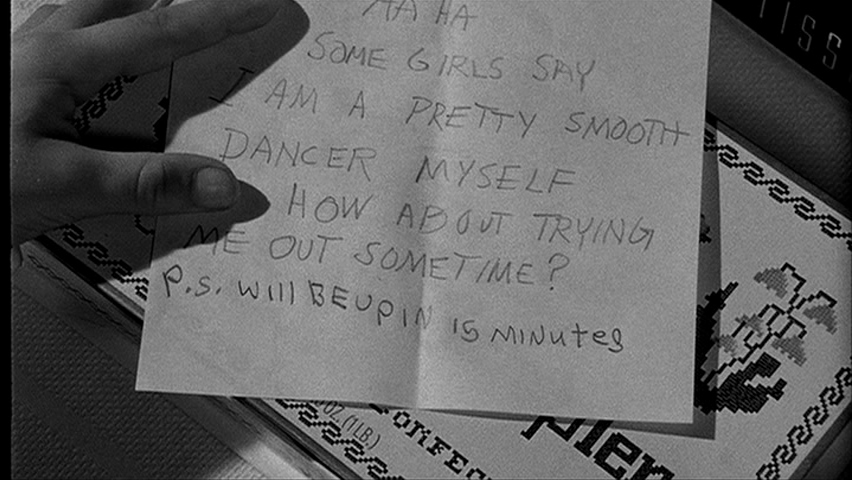 HA HA
SOME GIRLS SAY
I AM A PRETTY SMOOTH
DANCER MYSELF
HOW ABOUT TRYING
ME OUT SOMETIME?
P.S. WILL BE UP IN 15 MINUTES
OZ. (1 LB.)
CONFEC